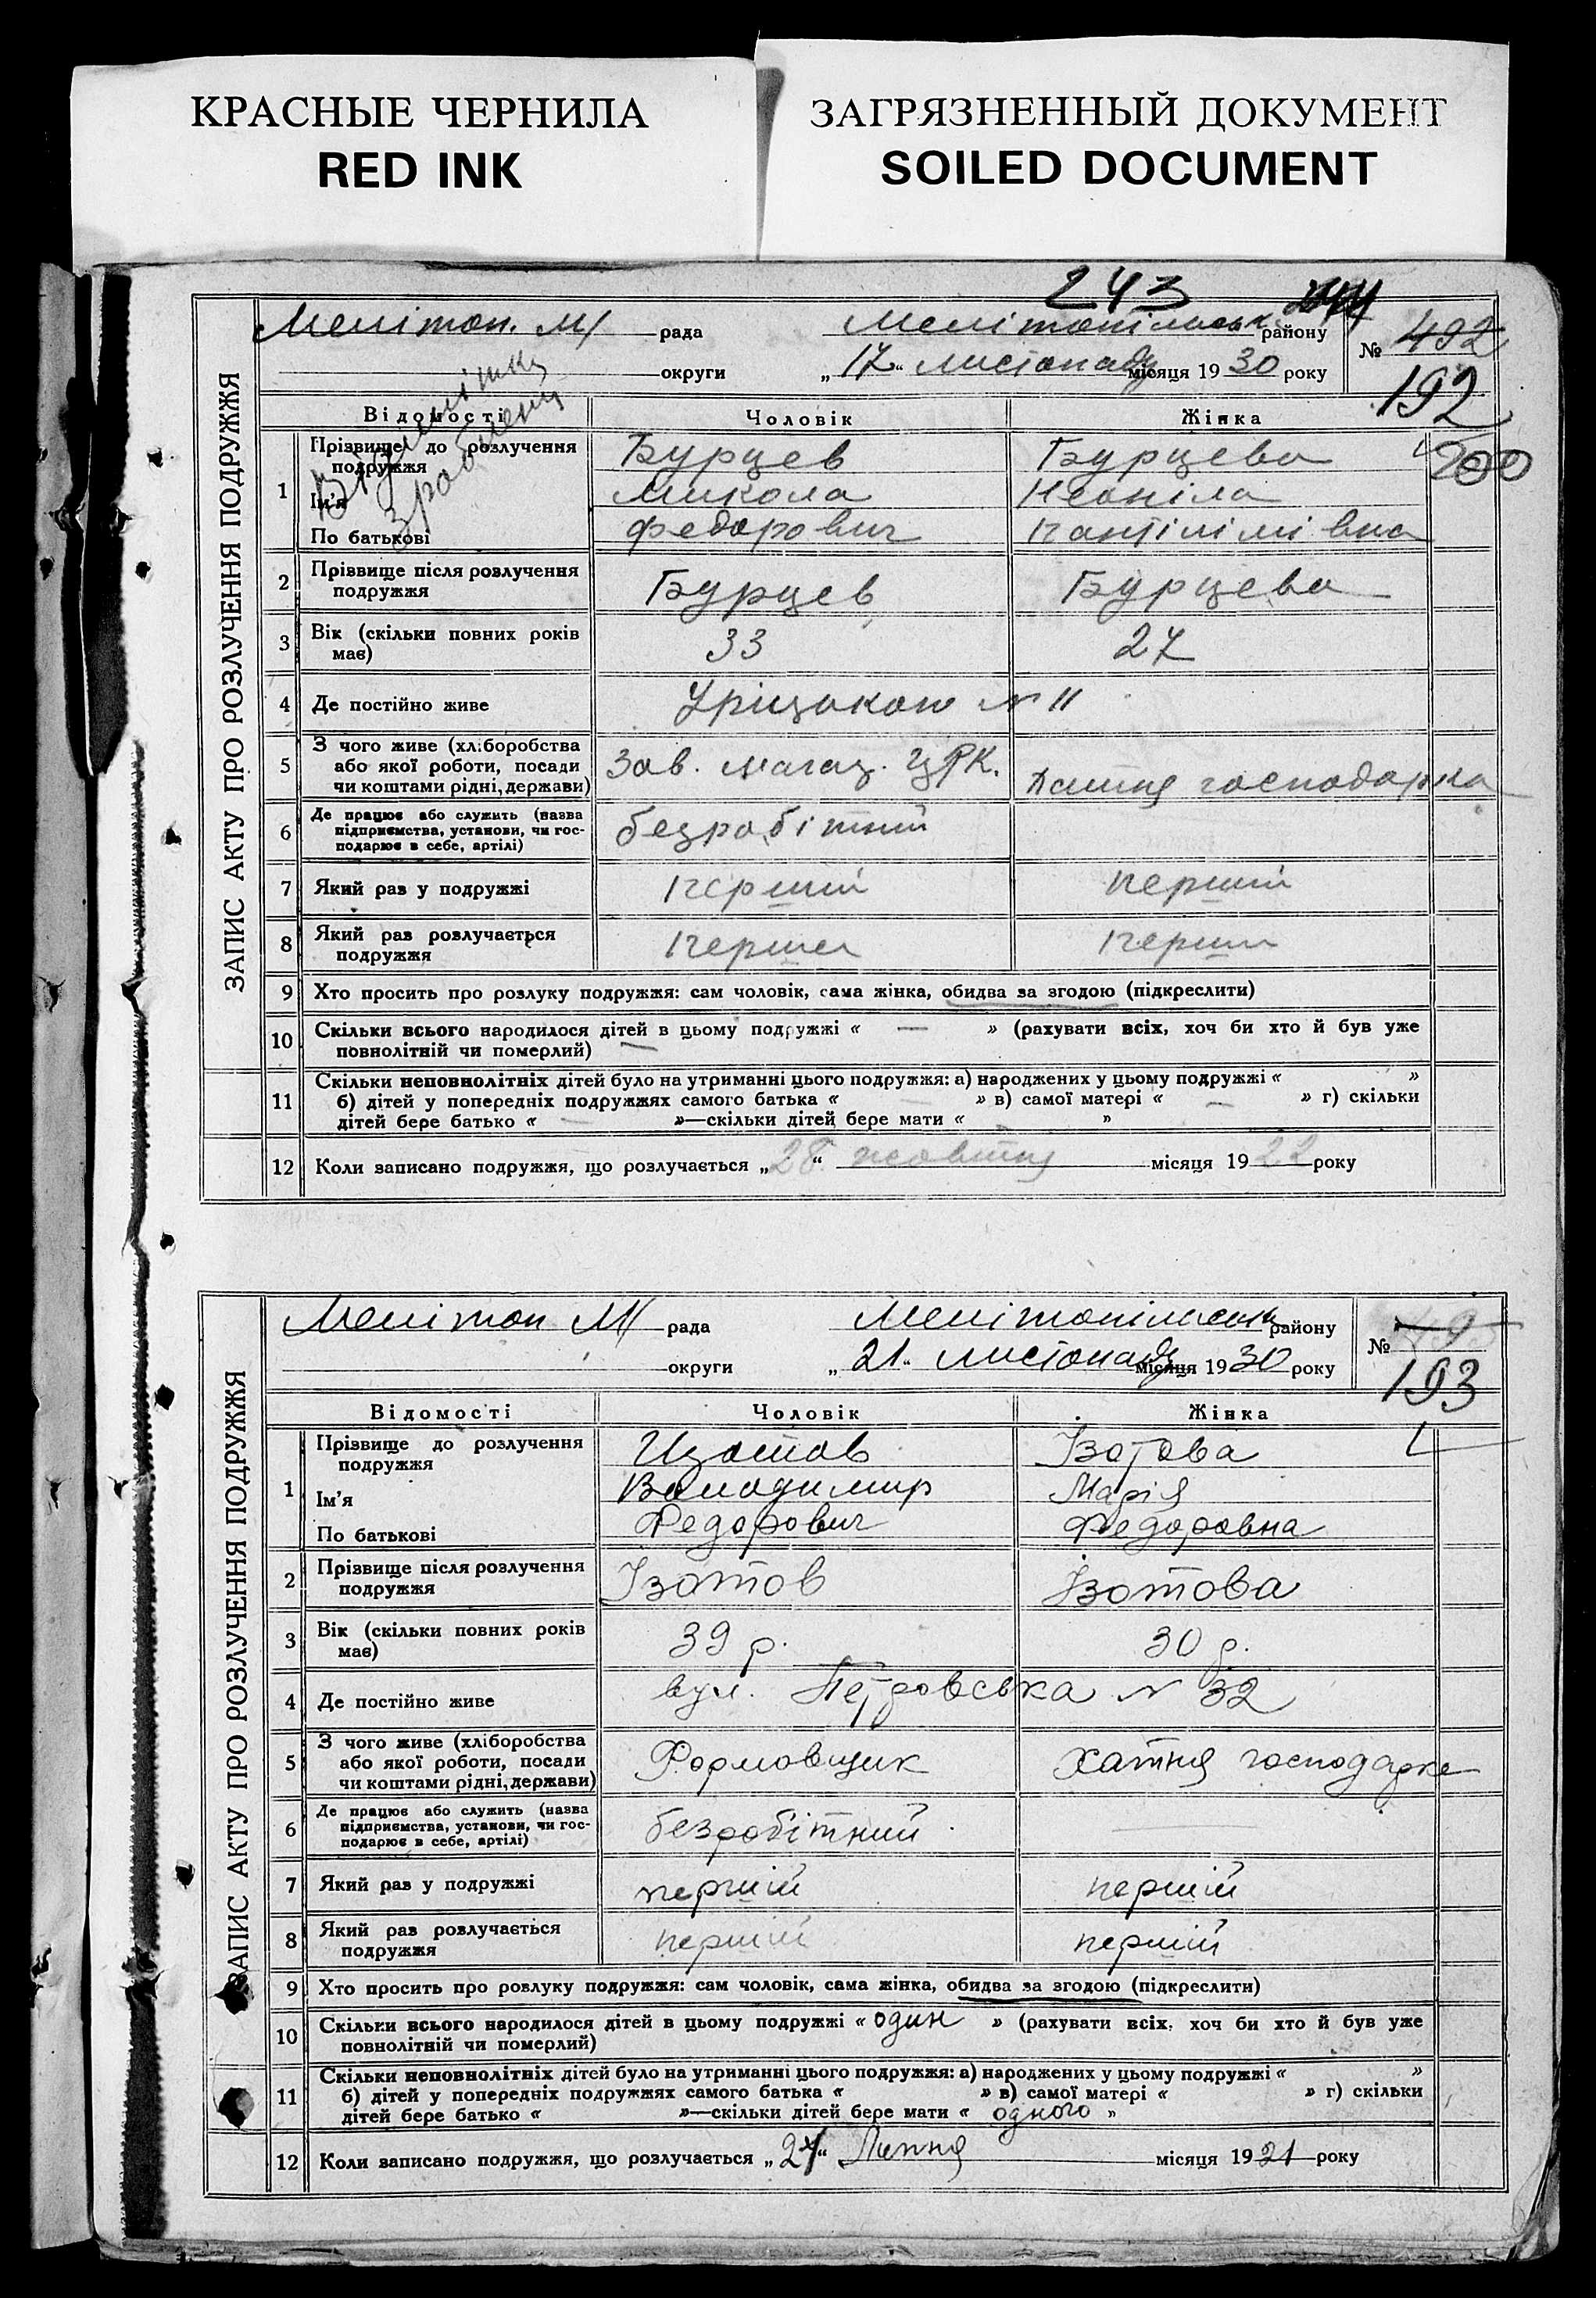 КРАСНЫЕ ЧЕРНИЛА
RED INK
ЗАГРЯЗНЕННЫЙ ДОКУМЕНТ
SOILED DOCUMENT
243
ЗАПИС АКТУ ПРО РОЗЛУЧЕННЯ ПОДРУЖЖЯ
МеліTоп. М/ рада Мелітопільськ району № 492
округи „17“ листопаду місяця 1930 року 192
Відмітку зроблену
Відомості Чоловік Жінка
1 Прізвище до розлучення подружжя Бурцев Бурцева 200
Ім'я Микола Неоніла
По батькові Федорович Пантілімівна
2 Прізвище після розлучення подружжя Бурцев Бурцева
3 Вік (скільки повних років має) 33 27
4 Де постійно живе Уріцького N 11
5 З чого живе (хліборобства або якої роботи, посади чи коштами рідні, держави) Зав. магаз. ЦРК. Хатня господарка
6 Де працює або служить (назва підприємства, установи, чи господарює в себе, артілі) безробітний
7 Який раз у подружжі перший перший
8 Який раз розлучається подружжя
9 Хто просить про розлуку подружжя: сам чоловік, сама жінка, обидва за згодою (підкреслити)
10 Скільки всього народилося дітей в цьому подружжі « — » (рахувати всіх, хоч би хто й був уже
повнолітній чи померлий) —
11 Скільки неповнолітніх дітей було на утриманні цього подружжя: а) народжених у цьому подружжі « »
б) дітей у попередніх подружжях самого батька « — » в) самої матері « — » г) скільки
дітей бере батько « — »—скільки дітей бере мати « »
12 Коли записано подружжя, що розлучається „28“ жовтня місяця 1922 року
ЗАПИС АКТУ ПРО РОЗЛУЧЕННЯ ПОДРУЖЖЯ
Мелітоп М/ рада Мелітопільськ району №
округи „21“ листопаду місяця 1930 року 193
Відомості Чоловік Жінка
1 Прізвище до розлучення подружжя Изотов Ізотова
Ім'я Володимир Марія
По батькові Федорович Федоровна
2 Прізвище після розлучення подружжя Ізотов Ізотова
3 Вік (скільки повних років має) 39 р. 30 р.
4 Де постійно живе вул. Петровська N 32
5 З чого живе (хліборобства або якої роботи, посади чи коштами рідні, держави) Формовщик Хатня господарка
6 Де працює або служить (назва підприємства, установи, чи господарює в себе, артілі) безробітний
7 Який раз у подружжі перший перший
8 Який раз розлучається подружжя перший перший
9 Хто просить про розлуку подружжя: сам чоловік, сама жінка, обидва за згодою (підкреслити)
10 Скільки всього народилося дітей в цьому подружжі « один » (рахувати всіх, хоч би хто й був уже
повнолітній чи померлий)
11 Скільки неповнолітніх дітей було на утриманні цього подружжя: а) народжених у цьому подружжі « »
б) дітей у попередніх подружжях самого батька « » в) самої матері « » г) скільки
дітей бере батько « »—скільки дітей бере мати « одного »
12 Коли записано подружжя, що розлучається „27“ Липня місяця 1921 року